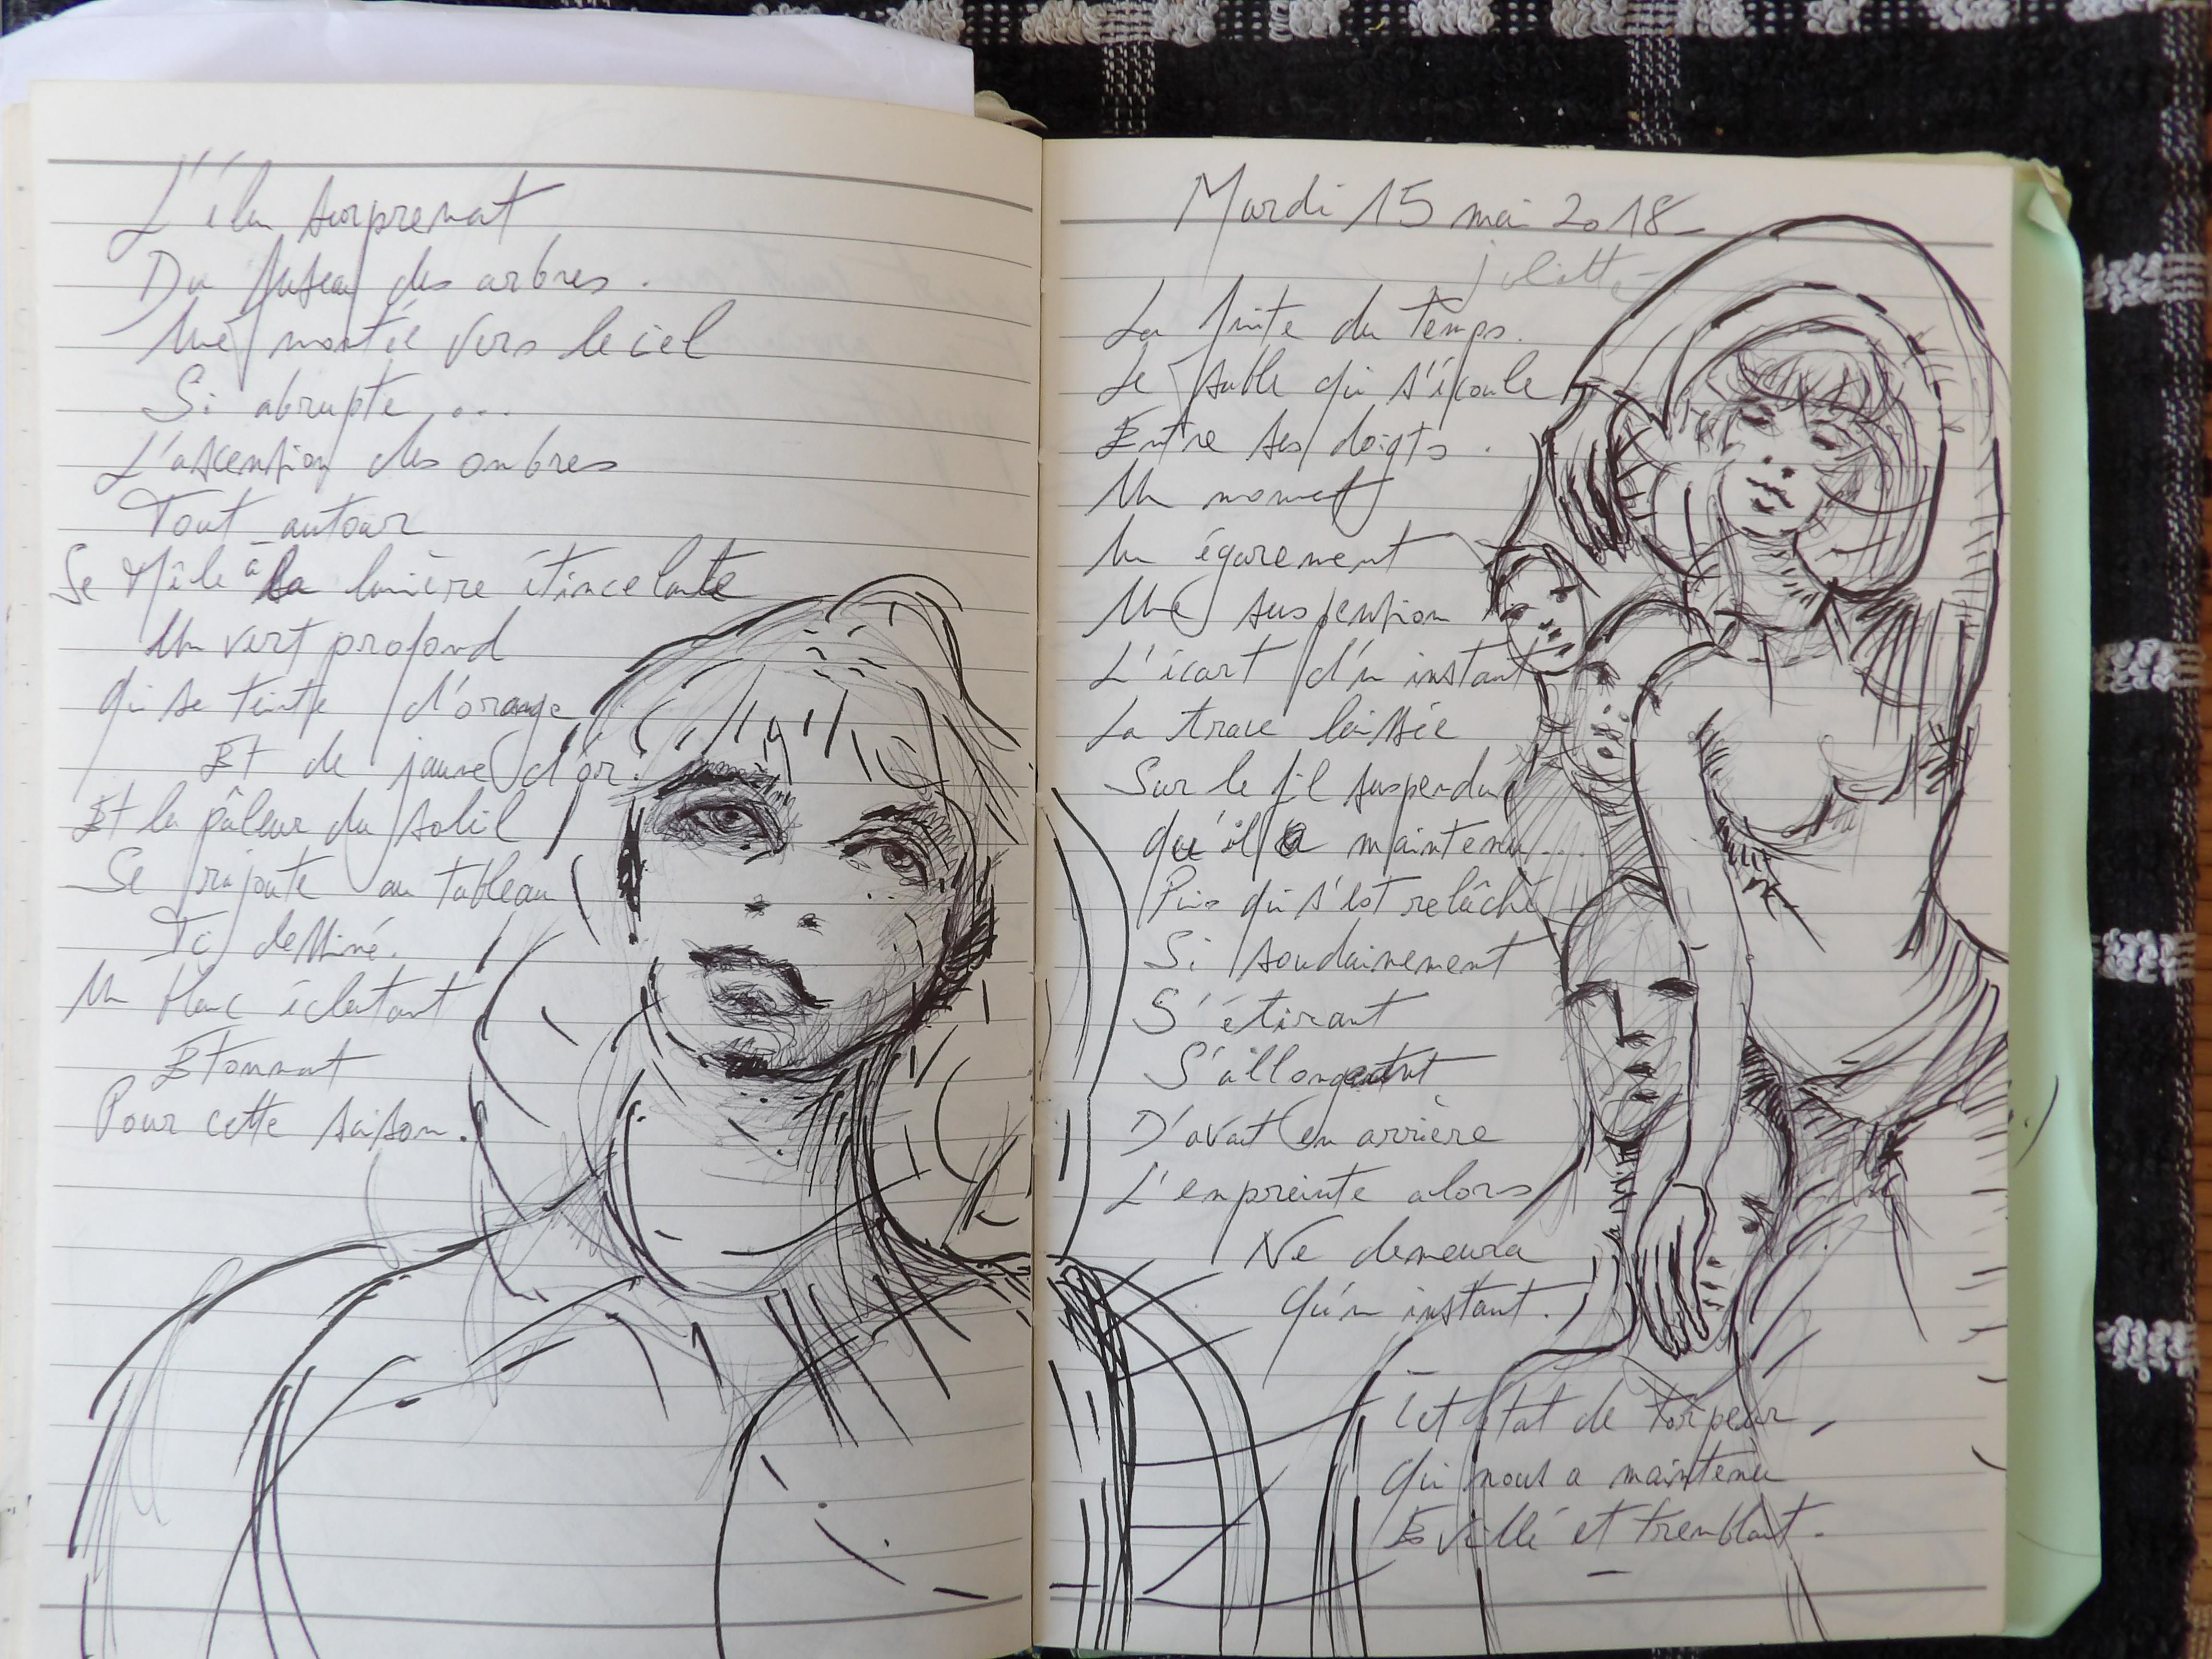 L'élan surprenant
Du fuseau des arbres.
Une montée vers le ciel
Si abrupte ...
L'ascension des ombres
Tout autour
Se Mêle à la lumière étincelante
Un vert profond
qui se teinte d'orange
Et de jaune d'or.
Et la pâleur du soleil
Se rajoute au tableau
Ici dessiné.
Un blanc éclatant
Etonnant
Pour cette saison.
Mardi 15 mai 2018
juliette
La fuite du temps.
Le sable qui s'écoule
Entre ses doigts.
Un moment
Un égarement
Une suspension
L'écart d'un instant
La trace laissée
Sur le fil suspendu
qu'il a maintenu...
Puis qui s'est relâché
Si soudainement
S'étirant
S'allongeant
D'avant en arrière
L'empreinte alors
Ne demeura
qu'un instant.
Cet état de torpeur,
qui nous a maintenu
Eveillé et tremblant.